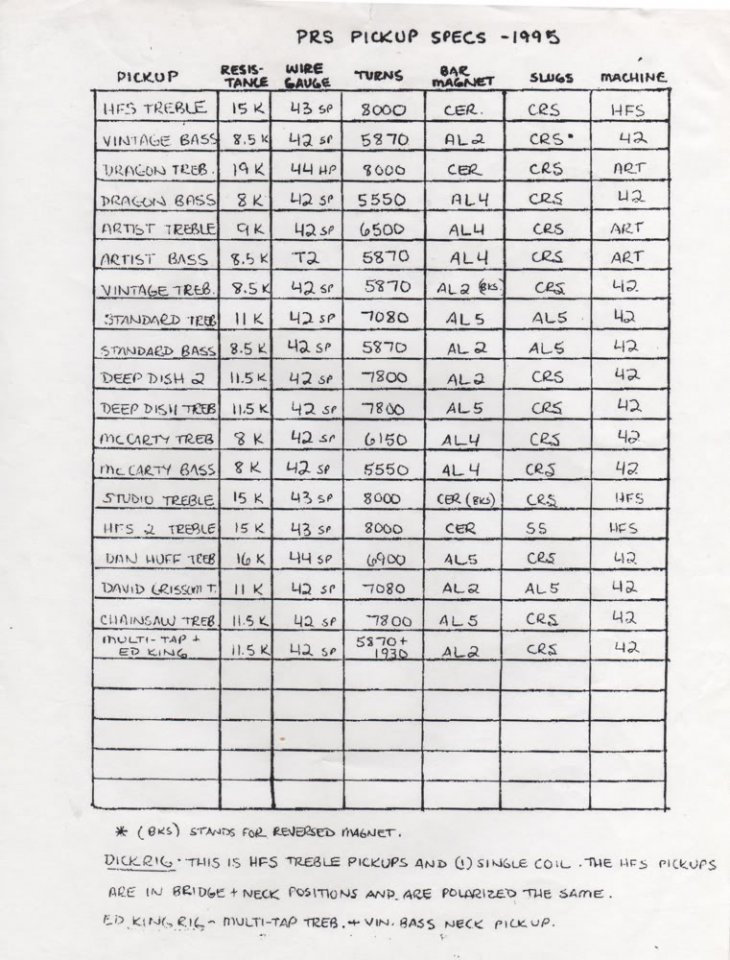 PRS PICKUP SPECS - 1995
PICKUP RESIS-TANCE WIRE GAUGE TURNS BAR MAGNET SLUGS MACHINE
HFS TREBLE 15 K 43 SP 8000 CER. CRS HFS
VINTAGE BASS 8.5 K 42 SP 5870 AL 2 CRS* 42
DRAGON TREB. 19 K 44 HP 8000 CER CRS ART
DRAGON BASS 8 K 42 SP 5550 AL 4 CRS 42
ARTIST TREBLE 9 K 42 SP 6500 AL4 CRS ART
ARTIST BASS 8.5 K T2 5870 AL 4 CRS ART
VINTAGE TREB. 8.5 K 42 SP 5870 AL 2 (BKS) CRS 42
STANDARD TREB 11 K 42 SP 7080 AL 5 AL5 42
STANDARD BASS 8.5 K 42 SP 5870 AL 2 AL5 42
DEEP DISH 2 11.5 K 42 SP 7800 AL 2 CRS 42
DEEP DISH TREB 11.5 K 42 SP 7800 AL 5 CRS 42
MCCARTY TREB 8 K 42 SP 6150 AL4 CRS 42
MCCARTY BASS 8 K 42 SP 5550 AL 4 CRS 42
STUDIO TREBLE 15 K 43 SP 8000 CER (BKS) CRS HFS
HFS 2 TREBLE 15 K 43 SP 8000 CER SS HFS
DAN HUFF TREB 16 K 44 SP 6900 AL5 CRS 42
DAVID GRISSOM T. 11 K 42 SP 7080 AL 2 AL 5 42
CHAINSAW TREB 11.5 K 42 SP 7800 AL 5 CRS 42
MULTI-TAP + ED KING 11.5 K 42 SP 5870 + 1930 AL2 CRS 42
* (BKS) STANDS FOR REVERSED MAGNET.
DICKRIG - THIS IS HFS TREBLE PICKUPS AND (1) SINGLE COIL. THE HFS PICKUPS
ARE IN BRIDGE + NECK POSITIONS AND ARE POLARIZED THE SAME.
ED KING RIG - MULTI-TAP TREB. + VIN. BASS NECK PICKUP.